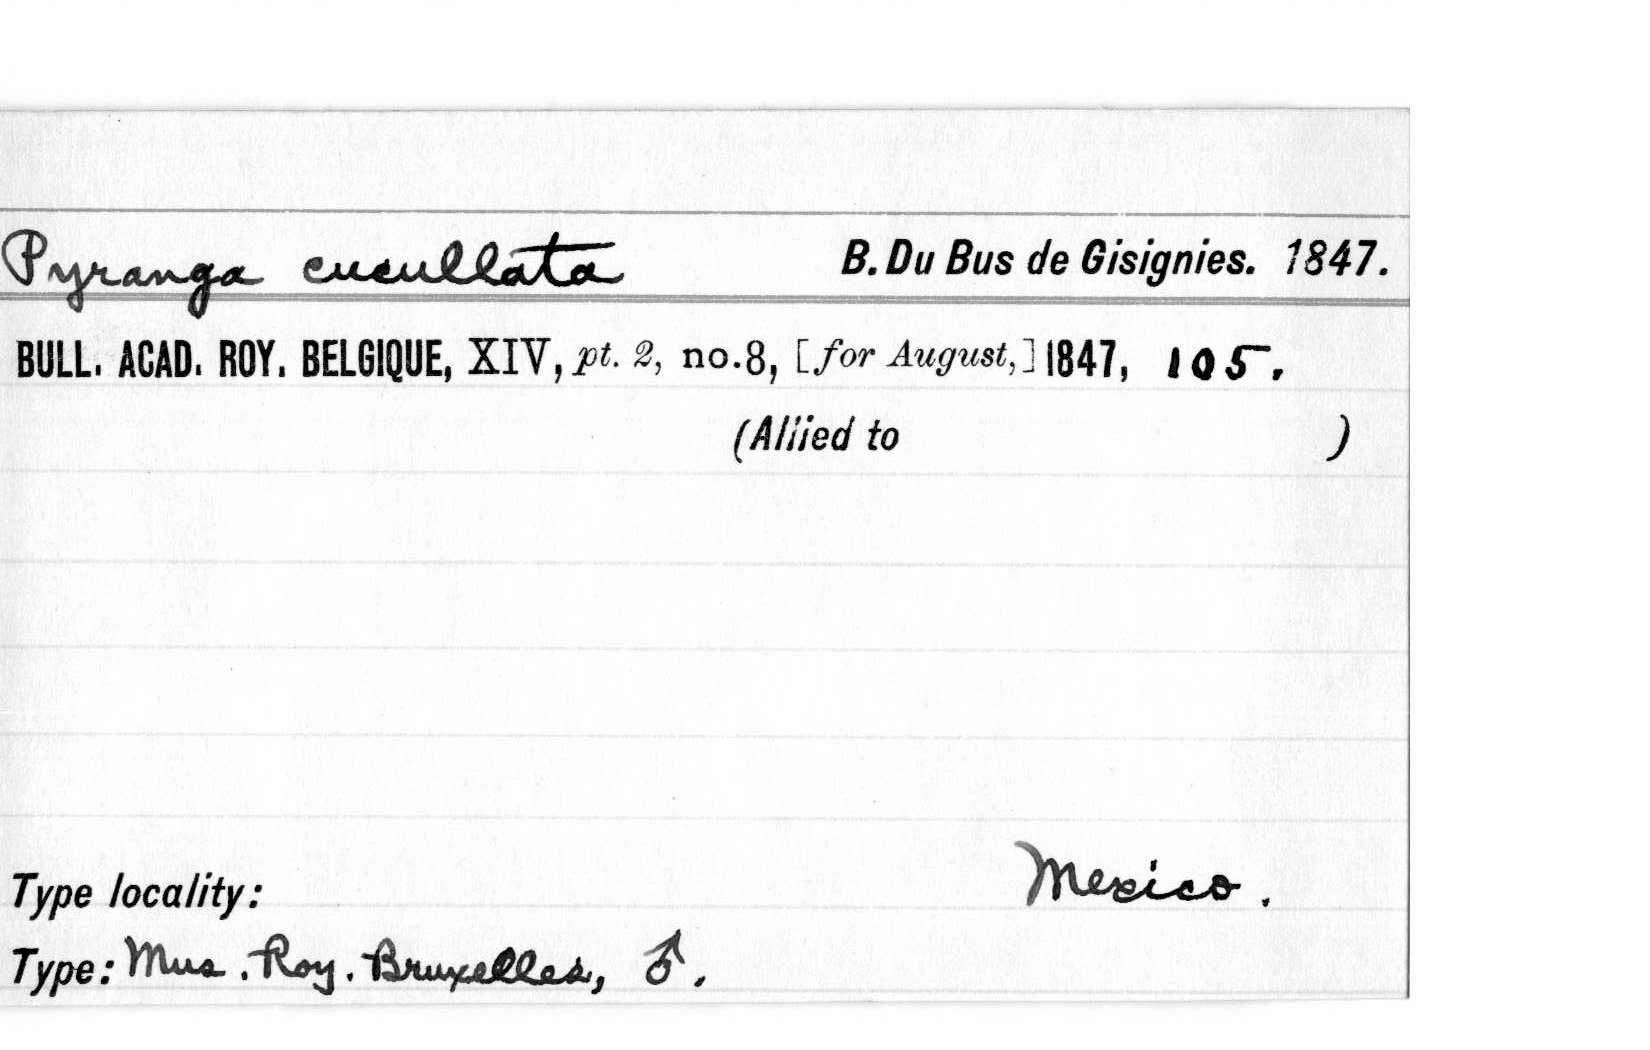 Pyranga cucullata B. Du Bus de Gisignies. 1847.
BULL. ACAD. ROY. BELGIQUE, XIV, pt. 2, no. 8, [for August,] 1847, 105.
(Allied to )
Type locality: Mexico.
Type: Mus. Roy. Bruxelles, ♂.